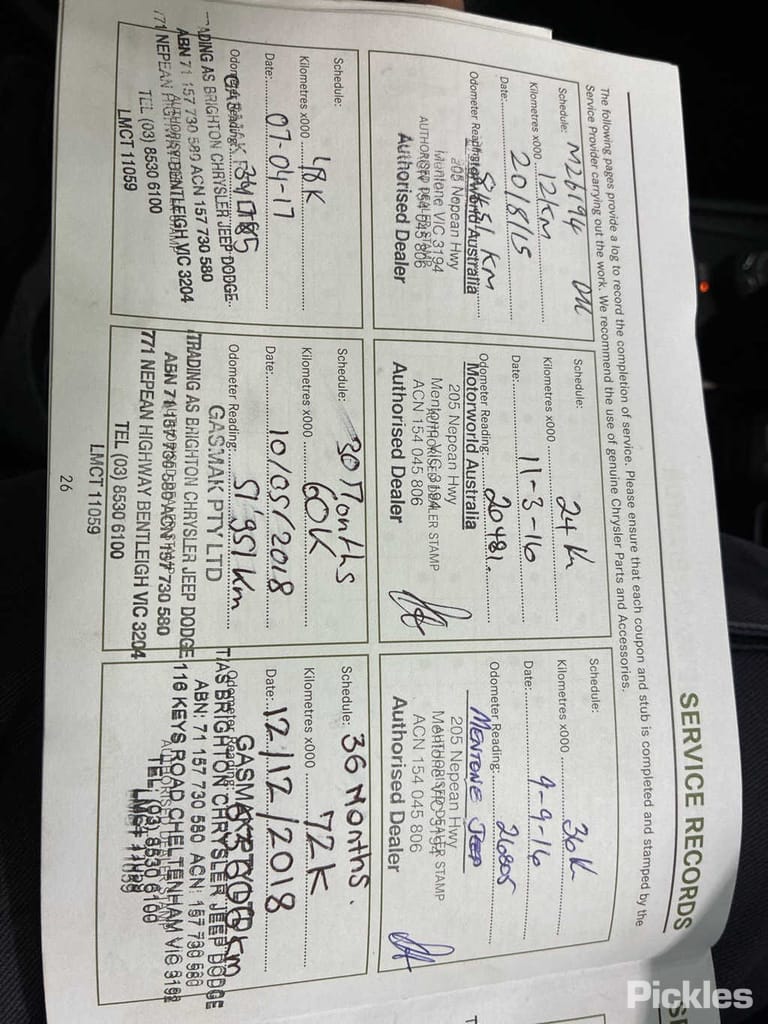 SERVICE RECORDS
The following pages provide a log to record the completion of service. Please ensure that each coupon and stub is completed and stamped by the
Service Provider carrying out the work. We recommend the use of genuine Chrysler Parts and Accessories.
Schedule:
Kilometres x000 12KM
Date: 2018/15
Odometer Reading:
Motorworld Australia
205 Nepean Hwy
Mentone VIC 3194
AUTHORISED DEALER STAMP
ACN 154 045 806
Authorised Dealer
Schedule:
Kilometres x000 24K
Date: 11-3-16
Odometer Reading: 20481.
Motorworld Australia
205 Nepean Hwy
Mentone VIC 3194
AUTHORISED DEALER STAMP
ACN 154 045 806
Authorised Dealer
Schedule:
Kilometres x000 36K
Date: 9-9-16
Odometer Reading: 26805
MENTONE JEEP
205 Nepean Hwy
Mentone VIC 3194
AUTHORISED DEALER STAMP
ACN 154 045 806
Authorised Dealer
Schedule:
Kilometres x000 48K
Date: 07-04-17
Odometer Reading:
TRADING AS BRIGHTON CHRYSLER JEEP DODGE
ABN 71 157 730 580 ACN 157 730 580
771 NEPEAN HIGHWAY BENTLEIGH VIC 3204
AUTHORISED DEALER STAMP
TEL (03) 8530 6100
LMCT 11059
Schedule: 30 Months
Kilometres x000 60K
Date: 10/05/2018
Odometer Reading: 51'951 Km
GASMAK PTY LTD
TRADING AS BRIGHTON CHRYSLER JEEP DODGE
ABN 71 157 730 580 ACN 157 730 580
AUTHORISED DEALER STAMP
771 NEPEAN HIGHWAY BENTLEIGH VIC 3204
TEL (03) 8530 6100
LMCT 11059
Schedule: 36 Months.
Kilometres x000 72K
Date: 12/12/2018
Odometer Reading:
GASMAK PTY LTD
T/AS BRIGHTON CHRYSLER JEEP DODGE
ABN: 71 157 730 580 ACN: 157 730 580
116 KEYS ROAD CHELTENHAM VIC 3192
AUTHORISED DEALER STAMP
TEL: (03) 8530 6100
LMCT 11059
26
Pickles